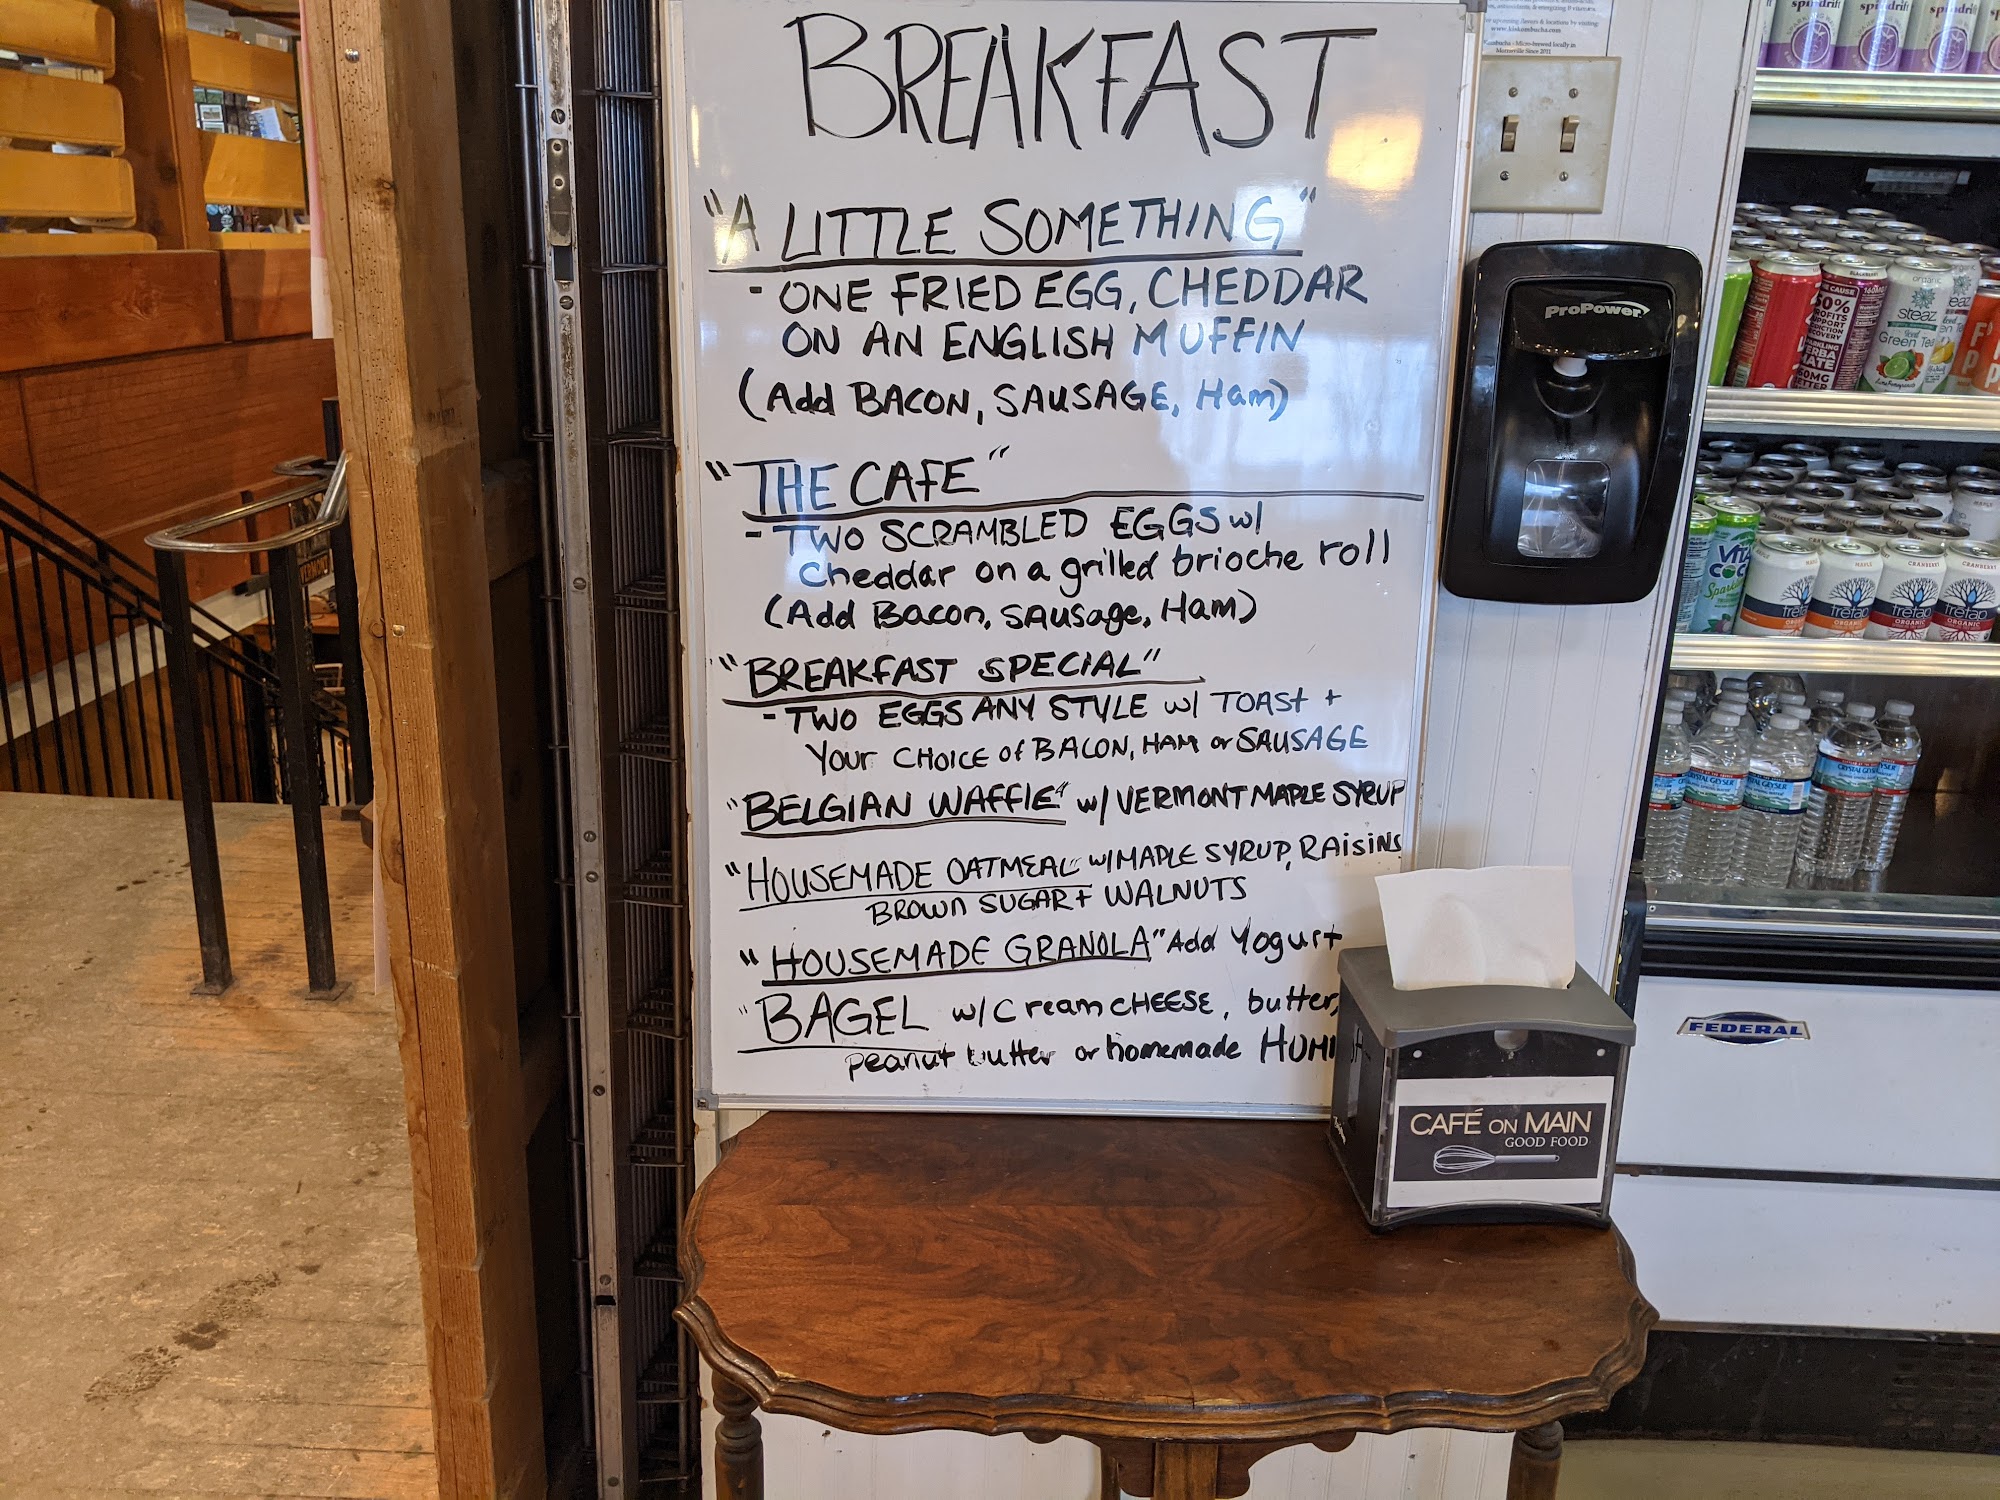 BREAKFAST
"A LITTLE SOMETHING"
- ONE FRIED EGG, CHEDDAR
ON AN ENGLISH MUFFIN
(Add BACON, SAUSAGE, Ham)
"THE CAFE"
- TWO SCRAMBLED EGGS w/
cheddar on a grilled brioche roll
(Add Bacon, Sausage, Ham)
"BREAKFAST SPECIAL"
- TWO EGGS ANY STYLE w/ TOAST +
YOUR CHOICE of BACON, HAM or SAUSAGE
"BELGIAN WAFFLE" w/ VERMONT MAPLE SYRUP
"HOUSEMADE OATMEAL" w/ MAPLE SYRUP, RAISINS
BROWN SUGAR + WALNUTS
"HOUSEMADE GRANOLA" Add Yogurt
"BAGEL w/ Cream CHEESE, butter,
peanut butter or homemade
CAFÉ ON MAIN
GOOD FOOD
ProPower
FEDERAL
www.kiskombucha.com
spindrift
steaz
organic
Green Tea
VITA
COCO
Sparkling
MAPLE
MAPLE
CRANBERRY
CRANBERRY
tretap
ORGANIC
tretap
ORGANIC
tretap
ORGANIC
tretap
ORGANIC
CRYSTAL GEYSER
VERMONT